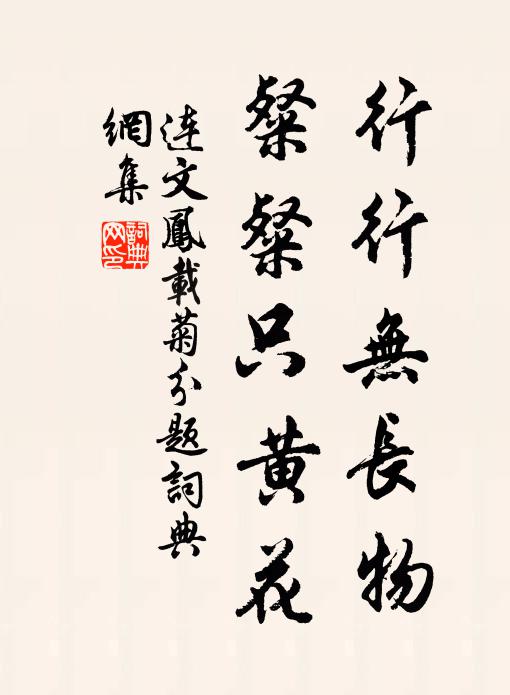 行行無長物
粲粲只黃花
連文鳳載菊分題詞典
網集
詞典
网印